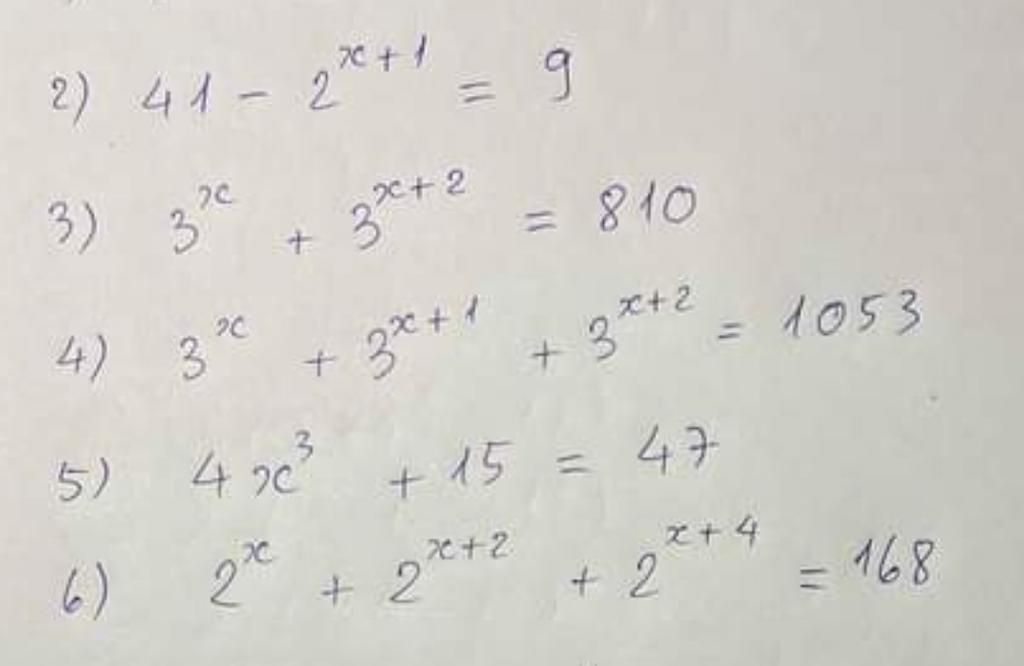 2) 41 - 2^{x+1} = 9
3) 3^x + 3^{x+2} = 810
4) 3^x + 3^{x+1} + 3^{x+2} = 1053
5) 4x^3 + 15 = 47
6) 2^x + 2^{x+2} + 2^{x+4} = 168